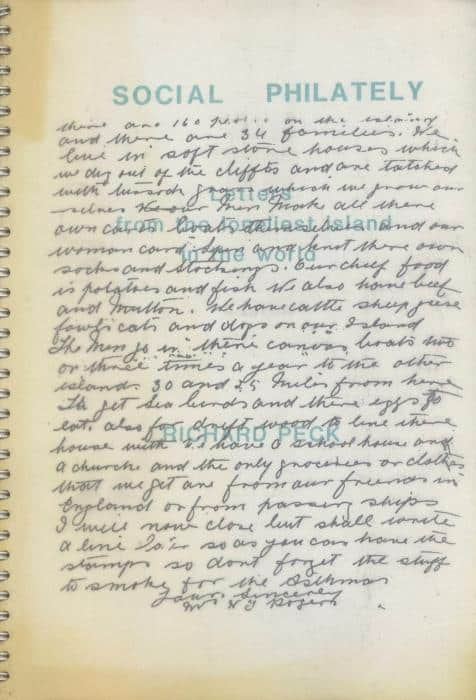 SOCIAL PHILATELY
there are 160 people on the
and there are 34 families. We
live in soft stone houses which
we dug out of the cliffts and are tatched
with tussock grass which we grow our
Letters
selves. our Men Make all there
from the loneliest island
own canvas boats themselves and our
in the world
woman card Spin and knot there own
socks and stockings. Our chief food
is potatoes and fish We also have beef
and Mutton. We have cattle sheep geese
fowls cats and dogs on our Island
The Men go in there canvas boats two
or three times a year to the other
islands. 30 and 25 Miles from here
To get Sea birds and there eggs to
eat. also for drift wood to line there
RICHARD PECK
house with We have a school house and
a church and the only groceries or clothes
that we get are from our friends in
England or from passing ships
I will now close but shall write
a line so as you can have the
stamps so dont forget the stuff
to smoke for the Asthma
Yours Sincerely
Mrs Rogers